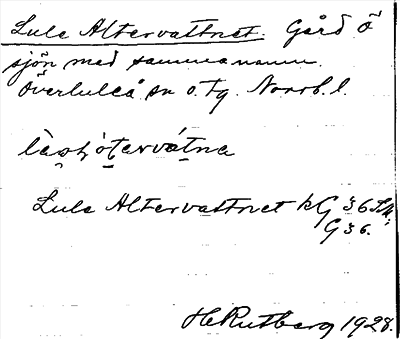 Lule Altervattnet. Gård ö
sjön med samma namn.
Överluleå sn o. tg. Norrb. l.
Lule Altervattnet kG 36 SV;
G 36.
H Rutberg 1928.